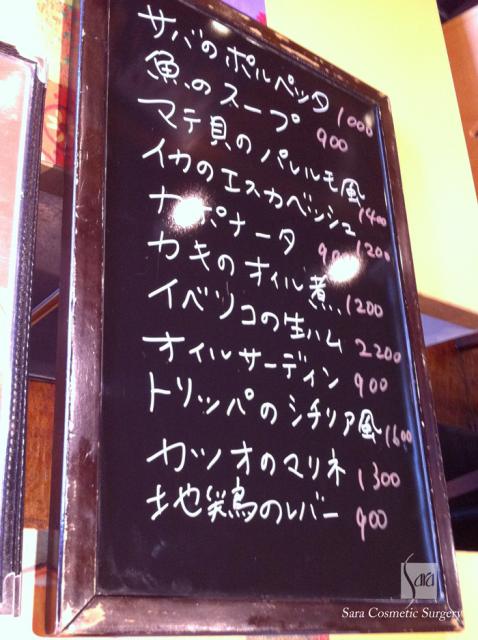 サバのポルペッタ 1000
魚のスープ 900
マテ貝のパレルモ風 1400
イカのエスカベッシュ 1200
カポナータ
カキのオイル煮 1200
イベリコの生ハム 2200
オイルサーディン 900
トリッパのシチリア風 1600
カツオのマリネ 1300
地鶏のレバー 900
Sara
Sara Cosmetic Surgery